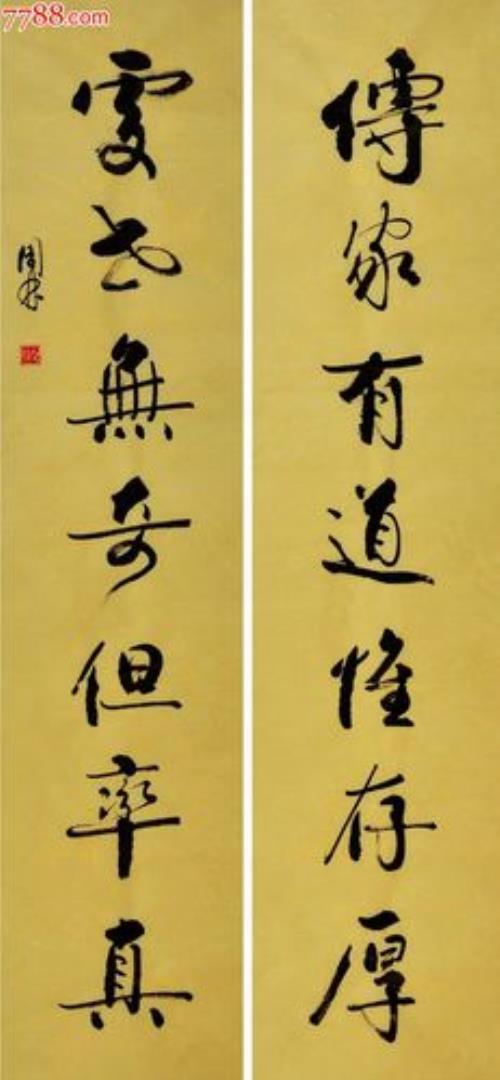 傳家有道惟存厚
處世無奇但率真
7788.com